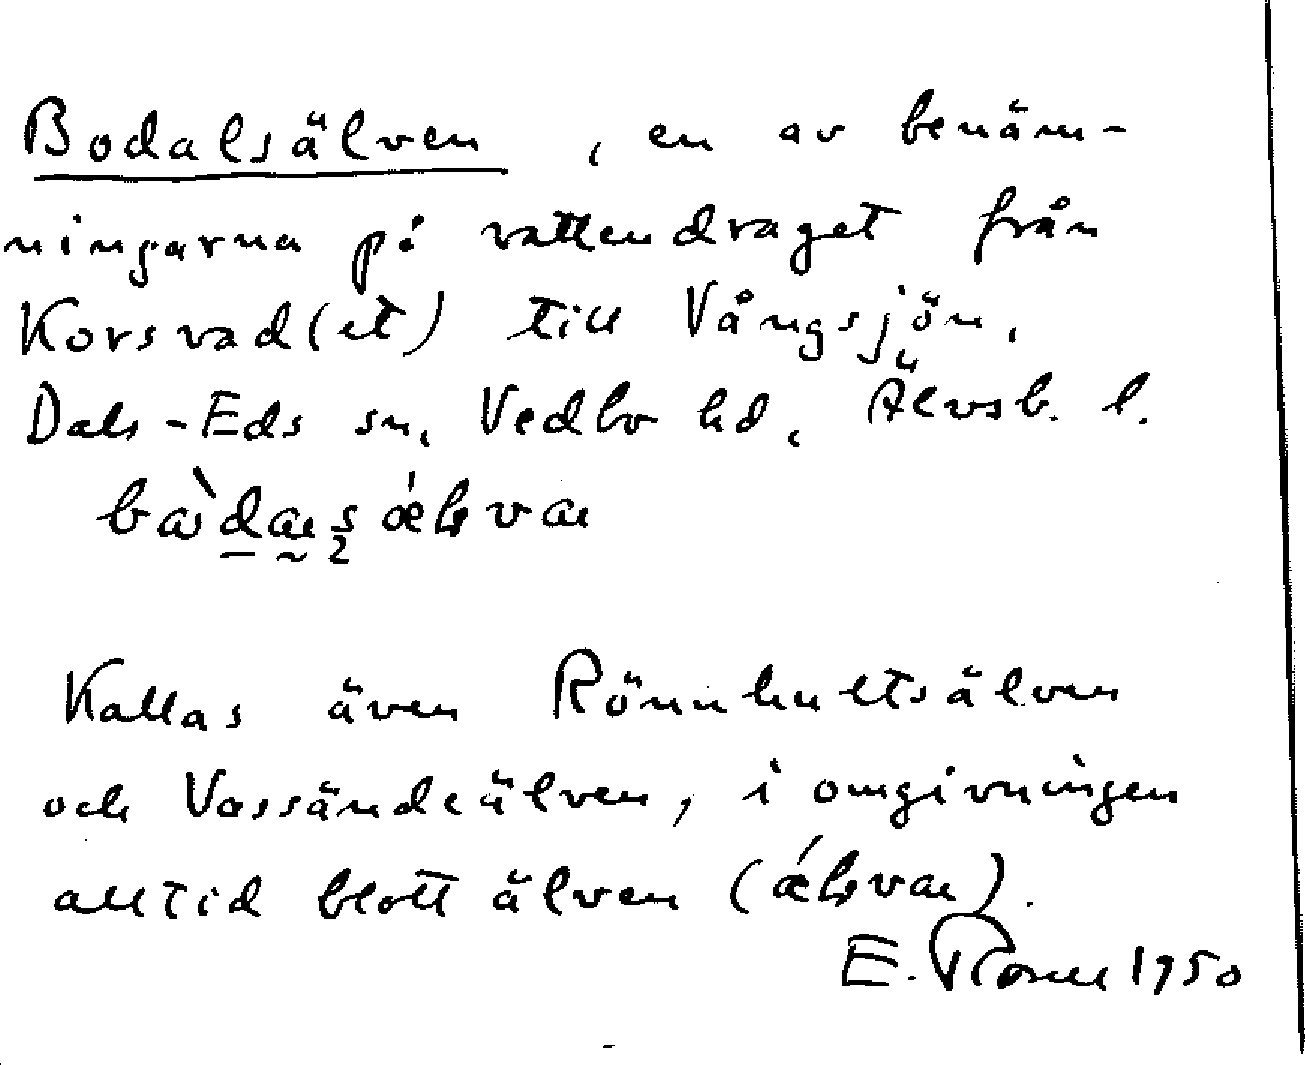 Bodalsälven, en av benäm-
ningarna på vattendraget från
Korsvad(et) till Vångsjön,
Dals-Eds sn, Vedbo hd, Älvsb. l.
Kallas även Rönnhultsälven
och Vassändeälven, i omgivningen
alltid blott älven
E. 1950